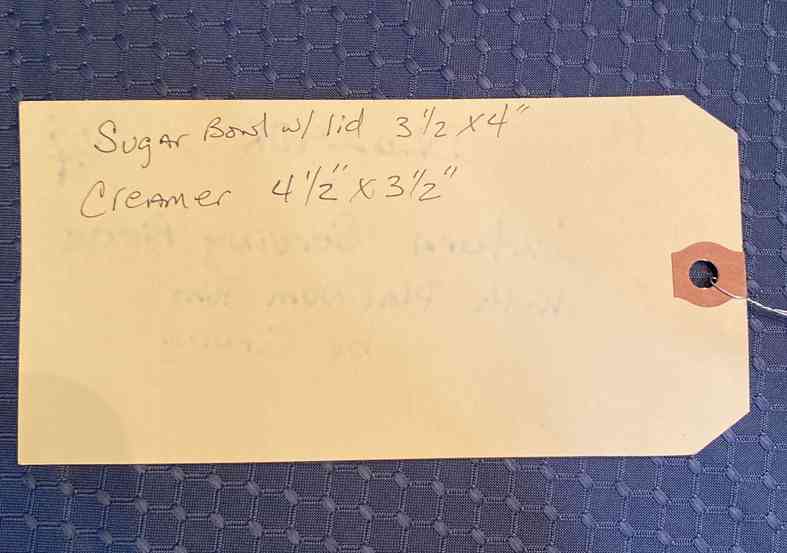 Sugar Bowl w/ lid 3 1/2 x 4"
Creamer 4 1/2" x 3 1/2"